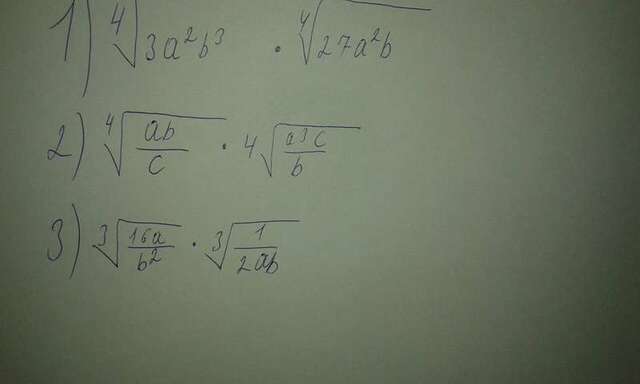 1) ∜(3a²b³) · ∜(27a²b)
2) ∜(ab/c) · ∜(a³c/b)
3) ∛(16a/b²) · ∛(1/2ab)